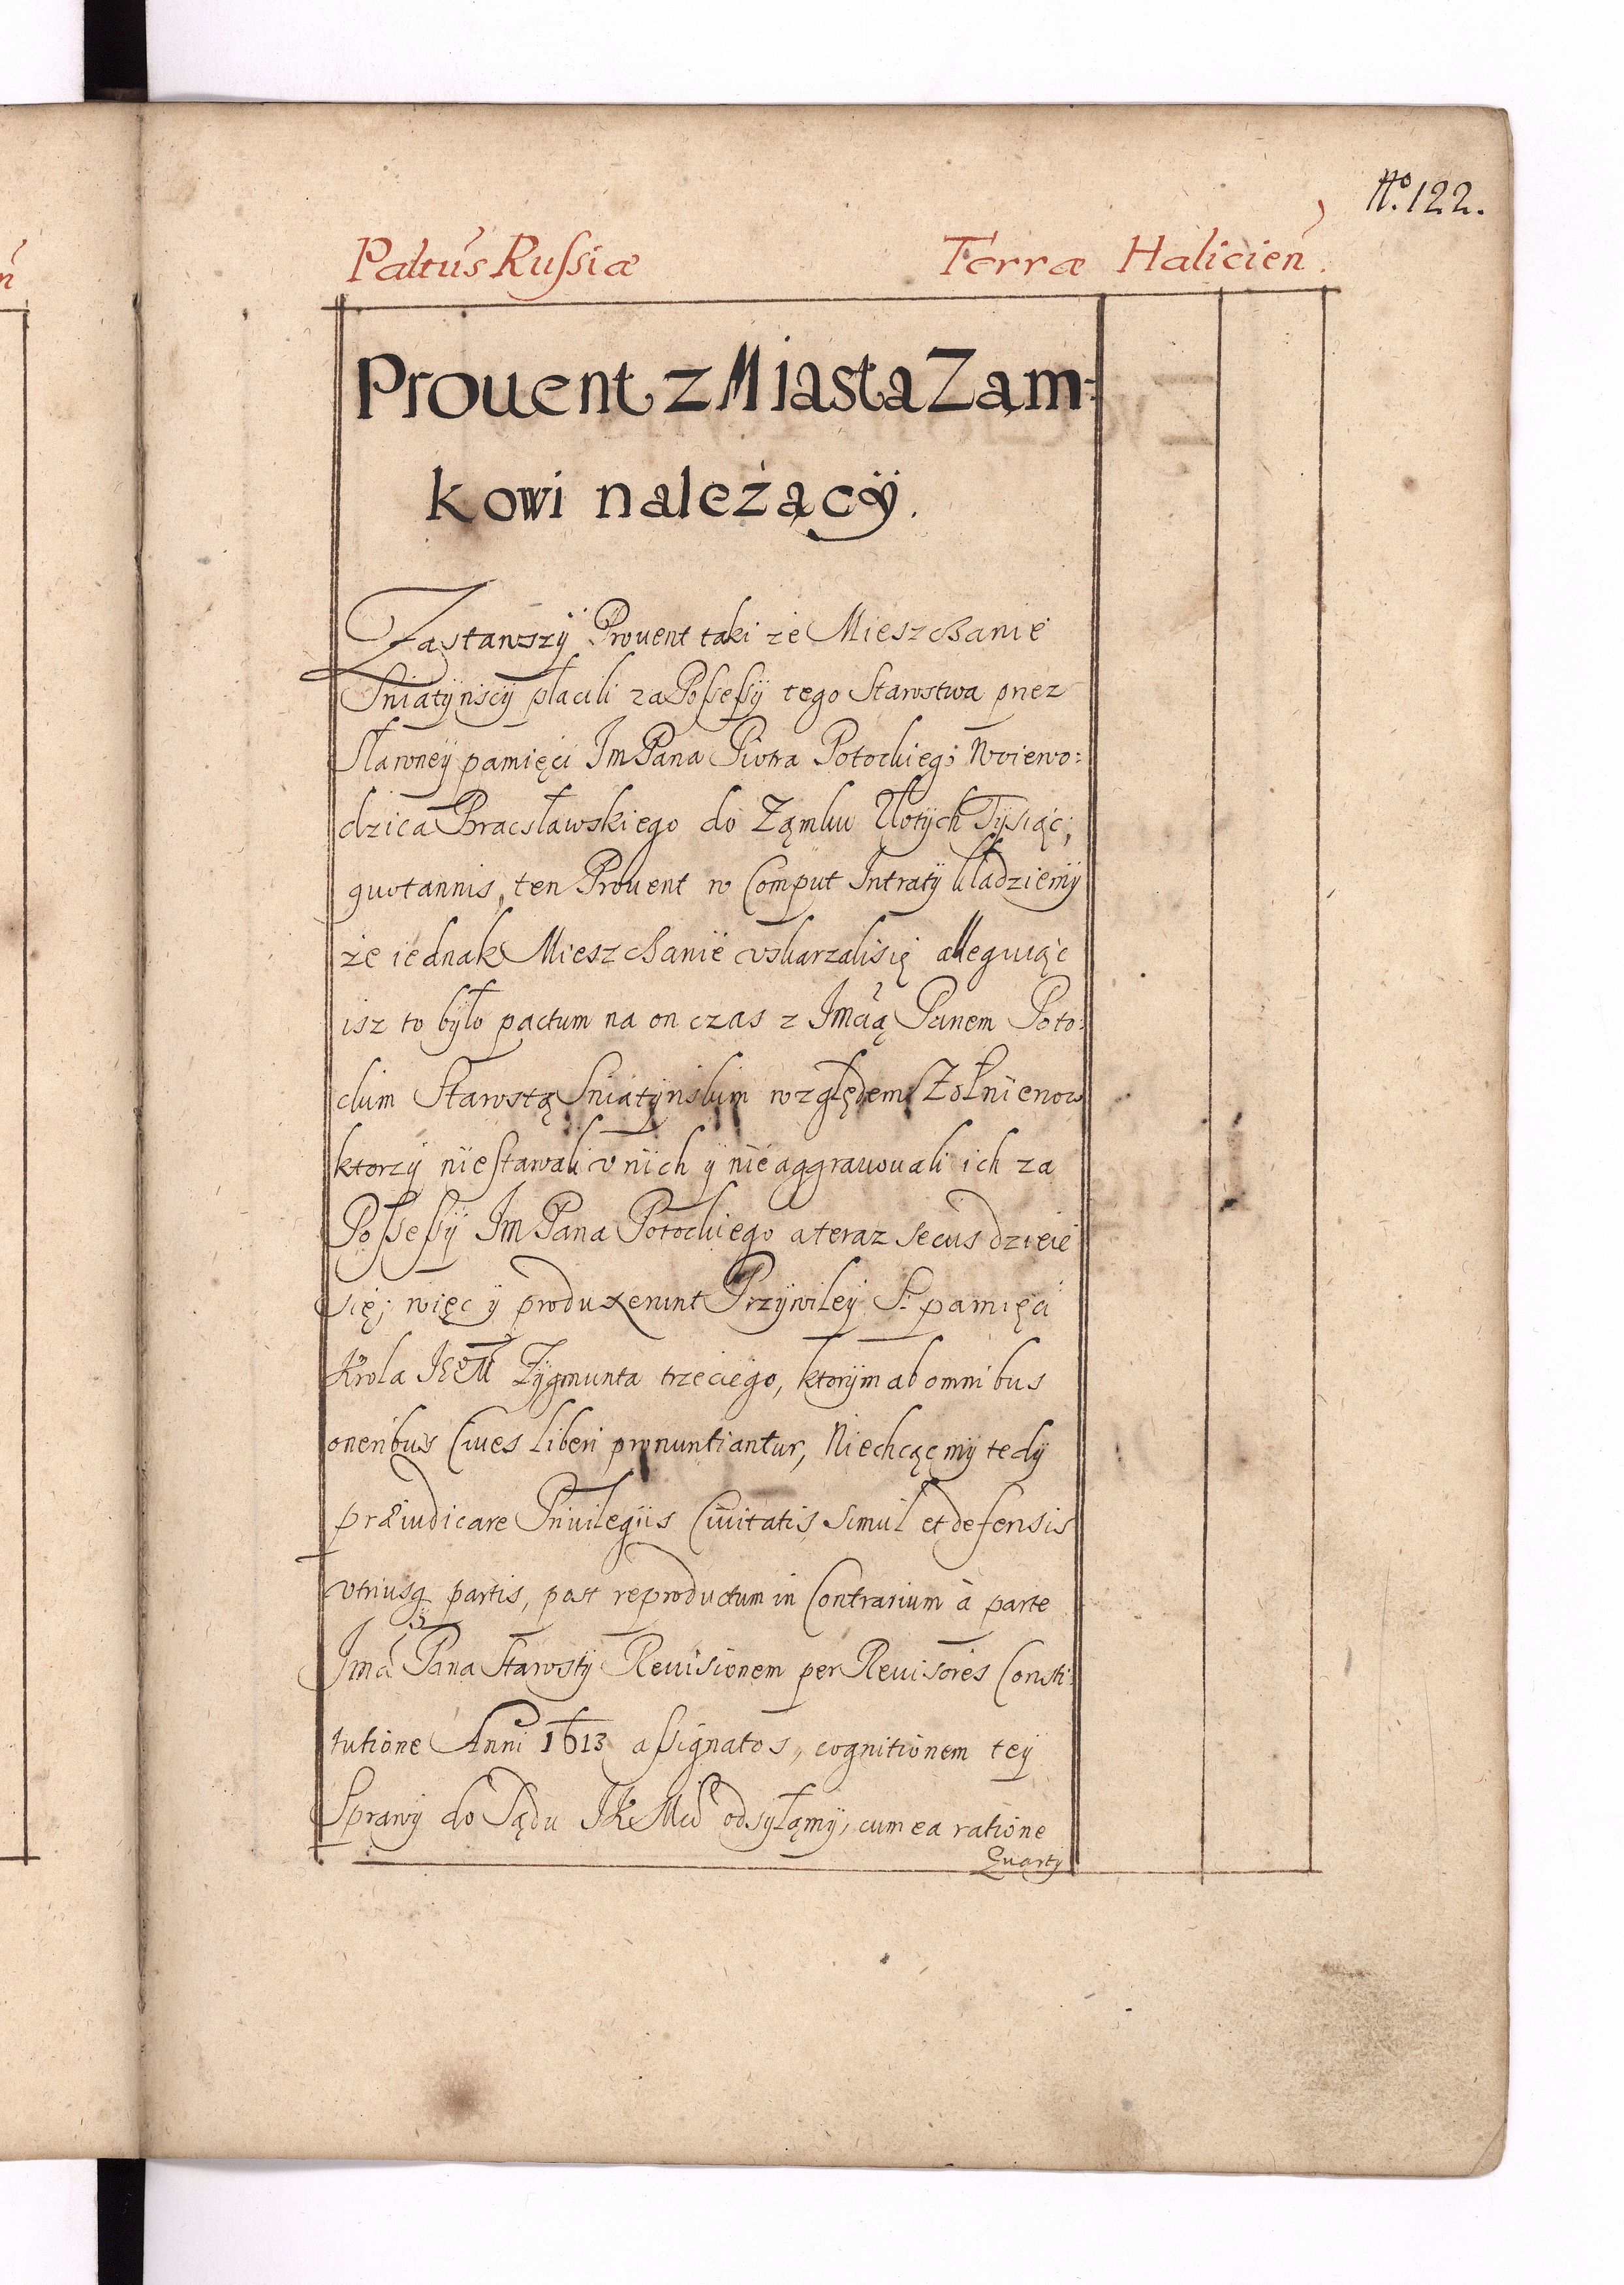 No. 122.
Paltus Russiæ Terræ Halicien.
Prouent z Miasta Zam:
kowi należący.
Zastawszÿ Prouent taki że Mieszczanie
Sniatÿnscÿ płacili za Possessÿi tego Starostwa przez
sławneÿ pamięci Jm Pana Piotra Potockieg: Woiewo:
dzica Bracsławskiego do Zamku Złotÿch Tÿsiąc,
quotannis, ten Prouent w Comput Intratÿ kładziemÿ
że iednak Mieszczanie vskarzalisię alleguiąc
isz to bÿło pactum na on czas z Jmcią Panem Poto:
ckim Starostą Sniatÿnskim względem Zołnierzow
ktorzÿ nie stawali v nich ÿ nie aggrauouali ich za
Possessÿi Jm Pana Potockiego a teraz secus dzieie
się; więc ÿ produxerunt Przÿwileÿ S: pamięci
Krola JeoM Zÿgmunta trzeciego, ktorÿm ab omnibus
oneribus Ciues liberi pronuntiantur, Niechcąc mÿ tedÿ
præiudicare Priuilegiis Ciuitatis, simul et defensis
vtriusq3 partis, post reproductum in Contrarium à parte
Jmci Pana Starostÿ Reuisionem per Reuisores Consti:
tutione Anni 1613 assignatos, cognitionem teÿ
Sprawÿ do Sądu JKMci odsÿłamÿ, cum ea ratione
Quartÿ